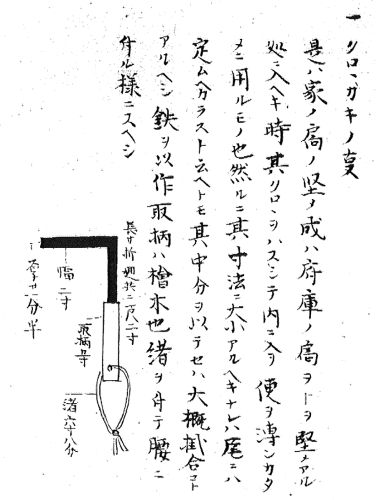 一 クロヽガキノ叓
是ハ家ノ扃ノ堅ノ成ハ府庫ノ扃ヲトヲ堅メアル
処ニ入ヘキ時其クロヽヲハスシテ内ニ入ヲ便ヲ専ンカタ
メニ用ルモノ也然ルニ其寸法ニ大小アルヘキナレハ尾ニハ
定ムヘカラスト云ヘトモ其中分ヲ以テセハ大概勘合コト
アルヘシ鉄ヲ以作取柄ハ檜木也緒ヲ付テ腰ニ
付ル様ニスヘシ
長サ折廻共二尺二寸
幅二寸
厚サ一分半
取柄
緒六寸八分